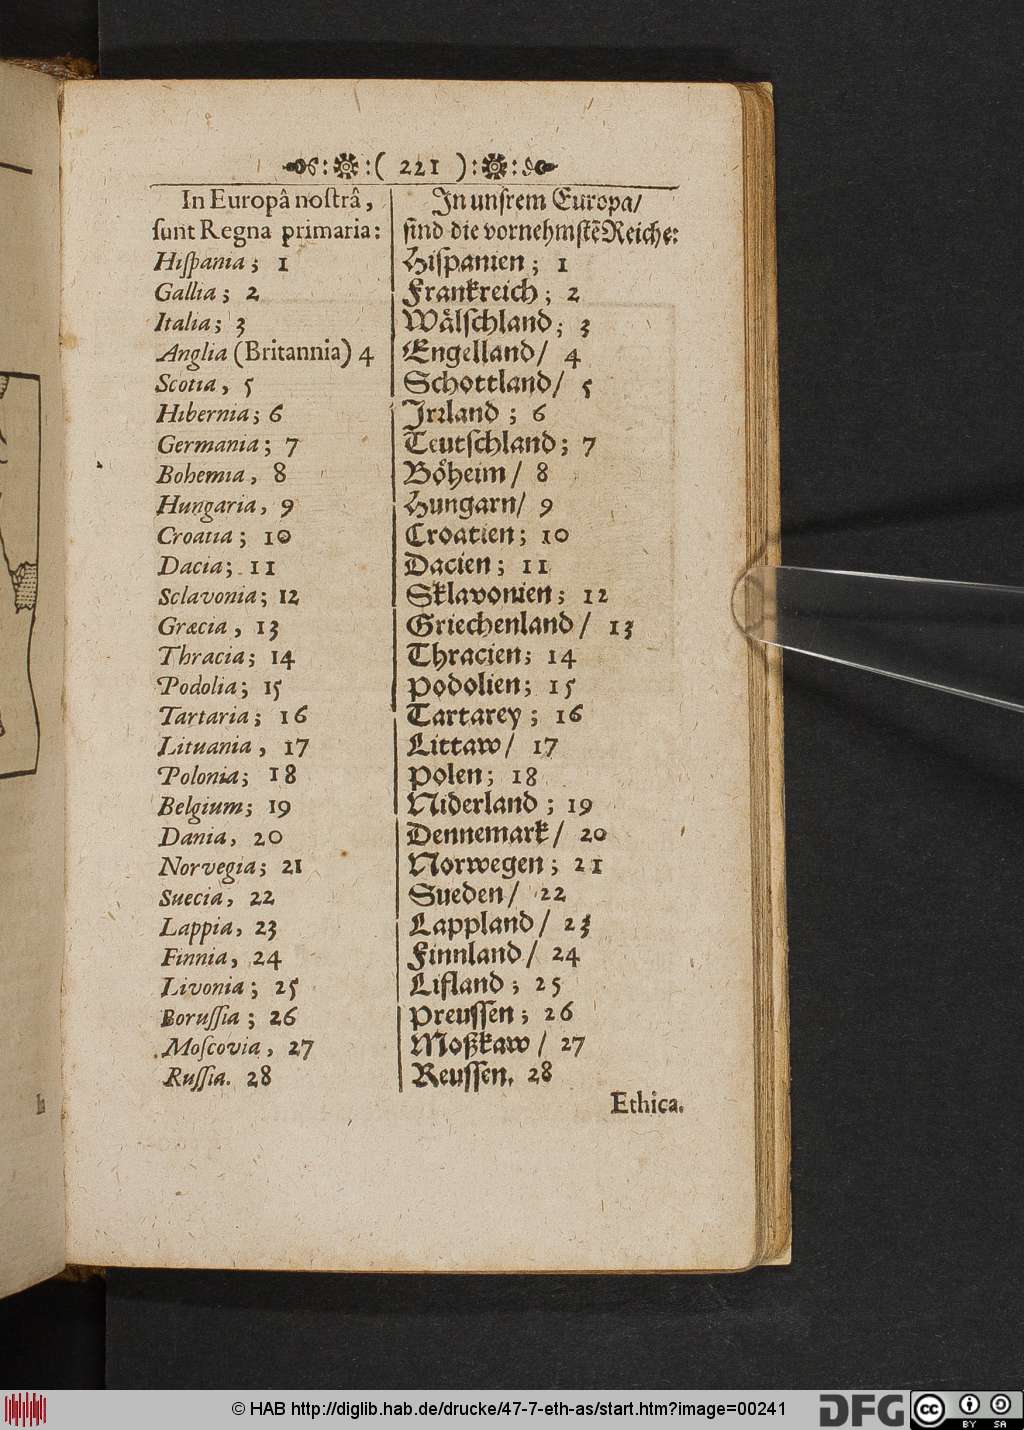 ( 221 )
In Europâ nostrâ,
sunt Regna primaria:
Hispania; 1
Gallia; 2
Italia; 3
Anglia (Britannia) 4
Scotia, 5
Hibernia; 6
Germania; 7
Bohemia, 8
Hungaria, 9
Croatia; 10
Dacia; 11
Sclavonia; 12
Græcia, 13
Thracia; 14
Podolia; 15
Tartaria; 16
Lituania, 17
Polonia; 18
Belgium; 19
Dania, 20
Norvegia; 21
Suecia, 22
Lappia, 23
Finnia, 24
Livonia; 25
Borussia; 26
Moscovia, 27
Russia. 28
In unsrem Europa/
sind die vornehmstẽ Reiche:
Hispanien; 1
Frankreich; 2
Wälschland; 3
Engelland/ 4
Schottland/ 5
Irrland; 6
Teutschland; 7
Böheim/ 8
Hungarn/ 9
Croatien; 10
Dacien; 11
Sklavonien; 12
Griechenland/ 13
Thracien; 14
Podolien; 15
Tartarey; 16
Littaw/ 17
Polen; 18
Niderland; 19
Dennemark/ 20
Norwegen; 21
Sueden/ 22
Lappland/ 23
Finnland/ 24
Lifland; 25
Preussen; 26
Moßkaw/ 27
Reussen. 28
Ethica.
© HAB http://diglib.hab.de/drucke/47-7-eth-as/start.htm?image=00241
DFG
cc
BY SA